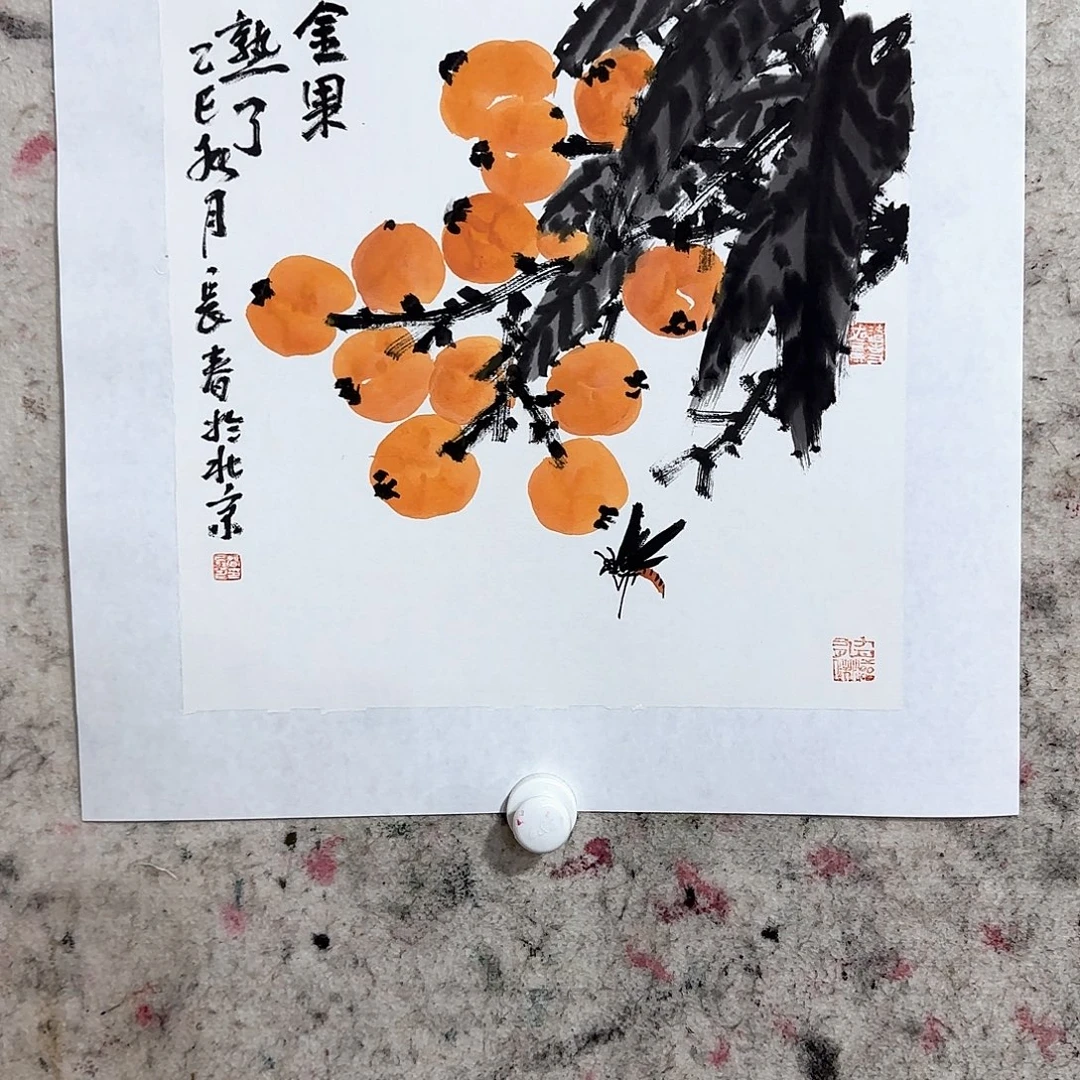 金果
熟了
乙巳秋月長春於北京